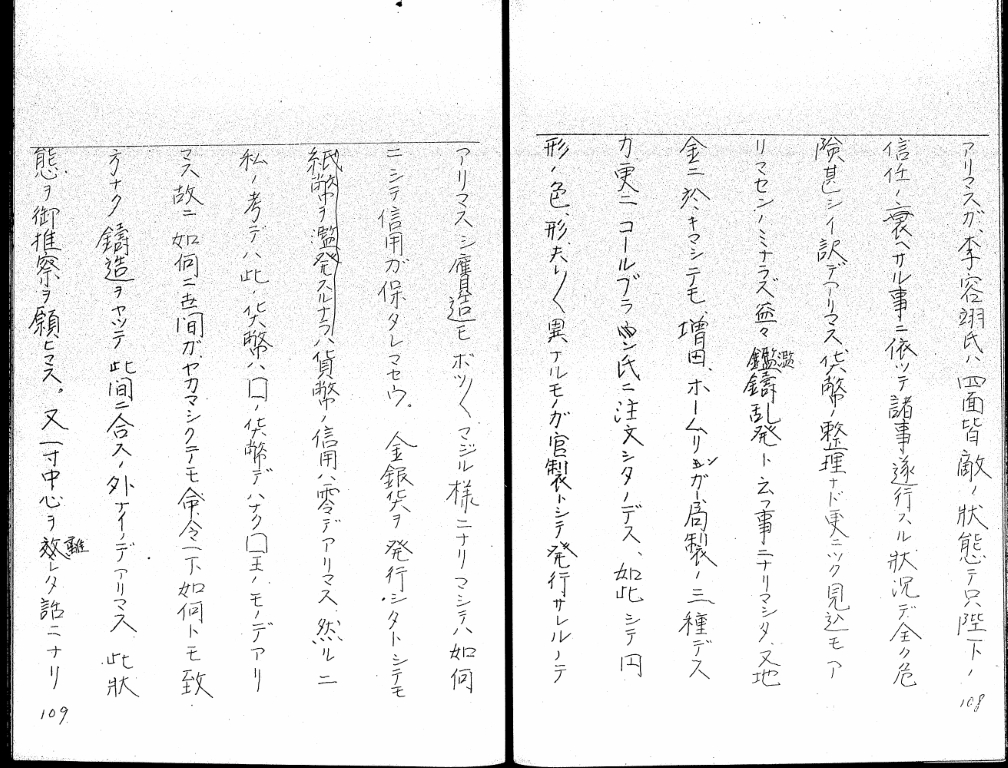 アリマスガ、李容翊氏ハ四面皆敵ノ状態デ只陛下ノ
信任ノ衰ヘサル事ニ依ッテ諸事遂行スル状況デ全ク危
険甚シイ訳デアリマス貨幣ノ整理ナド更ニツク見込モア
リマセンノミナラズ益々鑑鋳乱発ト云フ事ニナリマシタ、又地
濫
金ニ於キマシテモ、増田、ホームリンガー、局製ノ三種デス
カ更ニコールブラン氏ニ注文シタノデス、如此シテ円
形ノ色、形、夫々異ナルモノガ官製トシテ発行サレルノデ
108
アリマスシ贋造モボツ〱マジル様ニナリマシテハ如何
ニシテ信用ガ保タレマセウ。金銀貨ヲ発行シタトシテモ
紙幣ヲ濫発スルナラバ貨幣ノ信用ハ零デアリマス、然ルニ
私ノ考デハ此ノ貨幣ハ□ノ貨幣デハナク□王ノモノデアリ
マス故ニ如何ニ世間ガヤカマシクテモ命令一下如何トモ致
方ナク鋳造ヲヤッテ此間ニ合スノ外ナイノデアリマス此状
態ヲ御推察ヲ願ヒマス。又一寸中心ヲ效レタ話ニナリ
離
109